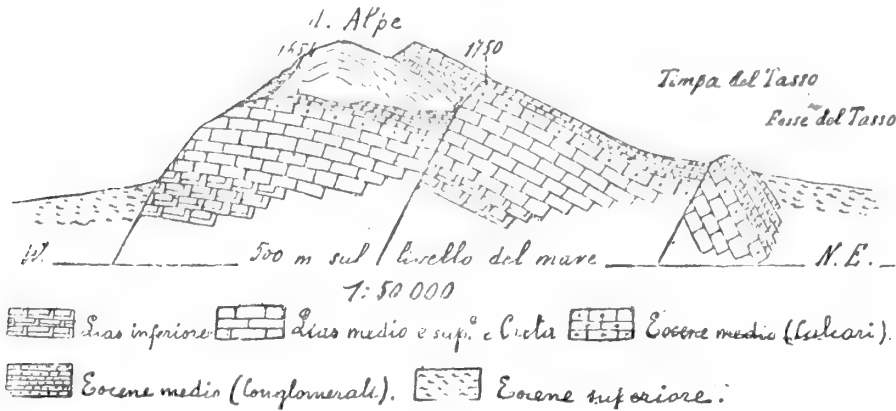 Alpe
1750
Timpa del Tasso
Fosse del Tasso
500 m sul livello del mare N.E.
1:50 000
Lias inferiore Lias medio e sup.e e Creta Eocene medio (Calcari).
Eocene medio (Conglomerati). Eocene superiore.